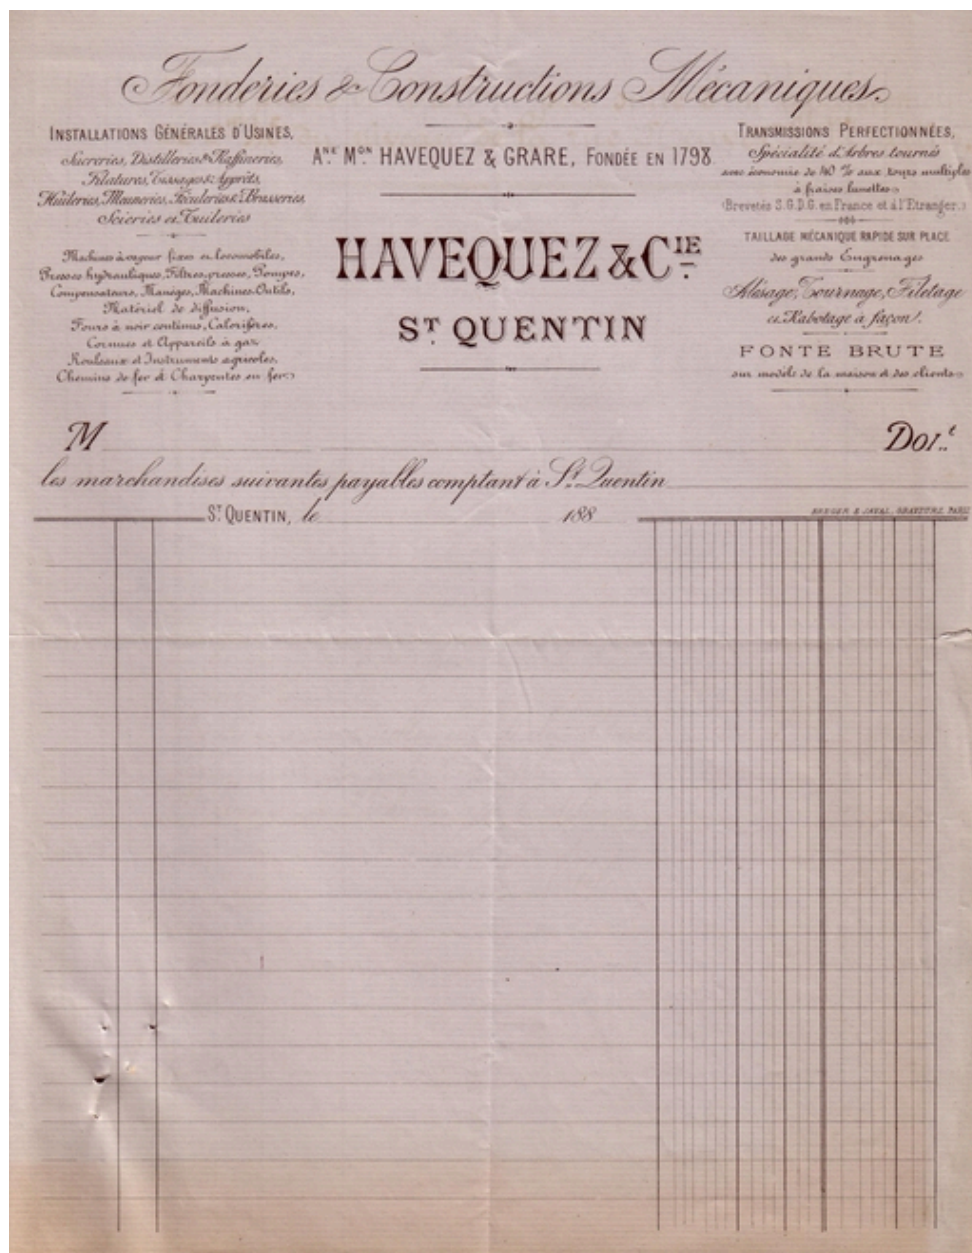 Fonderies & Constructions Mécaniques.
INSTALLATIONS GÉNÉRALES D'USINES,
Sucreries, Distilleries & Raffineries,
Filatures, Tissages & Apprêts,
Huileries, Meuneries, Féculeries & Brasseries,
Scieries et Tuileries
Machines à vapeur fixes et locomobiles,
Presses hydrauliques, Filtres-presses, Pompes,
Compensateurs, Manèges, Machines-Outils,
Matériel de diffusion,
Fours à noir continus, Calorifères,
Cornues et Appareils à gaz,
Rouleaux et Instruments agricoles,
Chemins de fer et Charpentes en fer
ANE MON HAVEQUEZ & GRARE, FONDÉE EN 1798
HAVEQUEZ & CIE
ST QUENTIN
TRANSMISSIONS PERFECTIONNÉES,
Spécialité d'Arbres tournés
avec économie de 40 % aux tours multiples
à fraises lunettes
(Brevetés S.G.D.G. en France et à l'Etranger.)
TAILLAGE MÉCANIQUE RAPIDE SUR PLACE
des grands Engrenages
Alésage, Tournage, Filetage
et Rabotage à façon.
FONTE BRUTE
sur modèle de la maison et des clients
M DOIT
les marchandises suivantes payables comptant à St Quentin
ST QUENTIN, le 188
GRAVEURS, PARIS